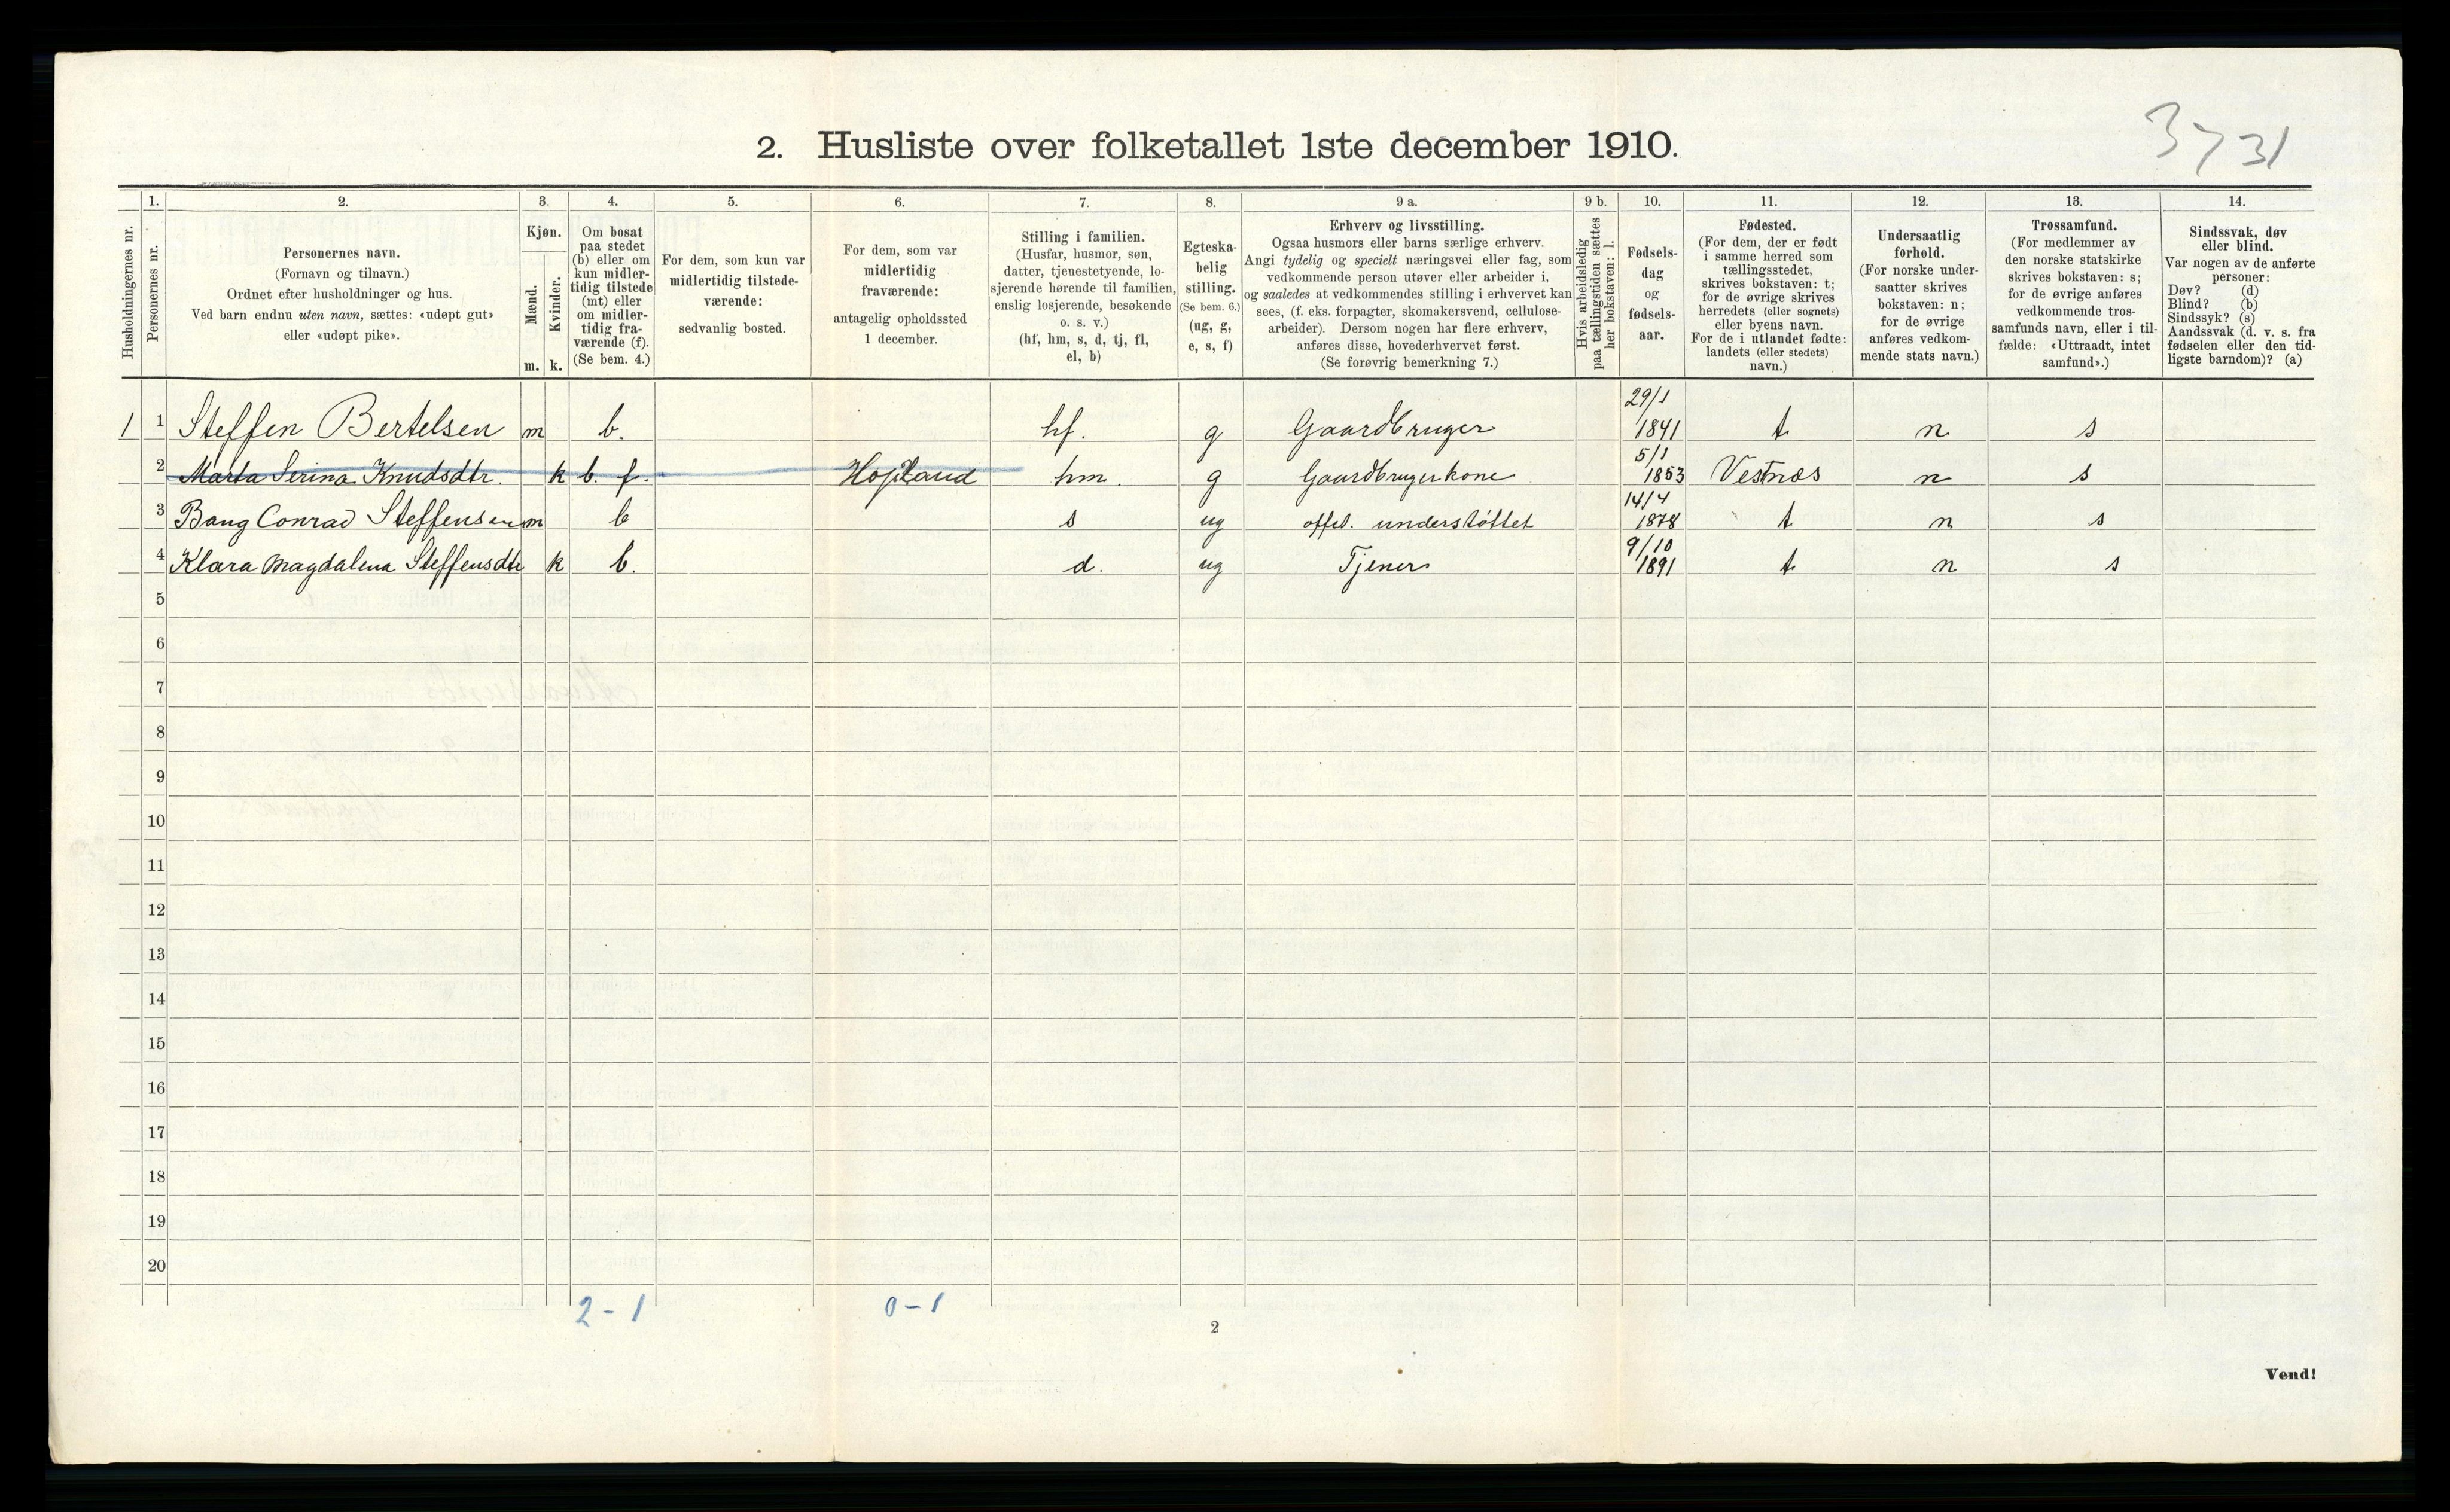 3731
2. Husliste over folketallet 1ste december 1910.
Husholdningernes nr.
1.
Personernes nr.
2.
Personernes navn.
(Fornavn og tilnavn.)
Ordnet efter husholdninger og hus.
Ved barn endnu uten navn, sættes: «udøpt gut»
eller «udøpt pike».
3.
Kjøn.
Mænd.
m.
Kvinder.
k.
4.
Om bosat
paa stedet
(b) eller om
kun midler-
tidig tilstede
(mt) eller
om midler-
tidig fra-
værende (f).
(Se bem. 4.)
5.
For dem, som kun var
midlertidig tilstede-
værende:
sedvanlig bosted.
6.
For dem, som var
midlertidig
fraværende:
antagelig opholdssted
1 december.
7.
Stilling i familien.
(Husfar, husmor, søn,
datter, tjenestetyende, lo-
sjerende hørende til familien,
enslig losjerende, besøkende
o. s. v.)
(hf, hm, s, d, tj, fl,
el, b)
8.
Egteska-
belig
stilling.
(Se bem. 6.)
(ug, g,
e, s, f)
9 a.
Erhverv og livsstilling.
Ogsaa husmors eller barns særlige erhverv.
Angi tydelig og specielt næringsvei eller fag, som
vedkommende person utøver eller arbeider i,
og saaledes at vedkommendes stilling i erhvervet kan
sees, (f. eks. forpagter, skomakersvend, cellulose-
arbeider). Dersom nogen har flere erhverv,
anføres disse, hovederhvervet først.
(Se forøvrig bemerkning 7.)
9 b.
Hvis arbeidsledig
paa tællingstiden sættes
her bokstaven: l.
10.
Fødsels-
dag
og
fødsels-
aar.
11.
Fødested.
(For dem, der er født
i samme herred som
tællingsstedet,
skrives bokstaven: t;
for de øvrige skrives
herredets (eller sognets)
eller byens navn.
For de i utlandet fødte:
landets (eller stedets)
navn.)
12.
Undersaatlig
forhold.
(For norske under-
saatter skrives
bokstaven: n;
for de øvrige
anføres vedkom-
mende stats navn.)
13.
Trossamfund.
(For medlemmer av
den norske statskirke
skrives bokstaven: s;
for de øvrige anføres
vedkommende tros-
samfunds navn, eller i til-
fælde: «Uttraadt, intet
samfund».)
14.
Sindssvak, døv
eller blind.
Var nogen av de anførte
personer:
Døv? (d)
Blind? (b)
Sindssyk? (s)
Aandssvak (d. v. s. fra
fødselen eller den tid-
ligste barndom)? (a)
1 1 Steffen Bertelsen m b. hf. g Gaardbruger 29/1 1841 t n s
2 Marta Serina Knudsdtr. k b. f. Hopland hm. g Gaardbrugerkone 5/1 1853 Vestnæs n s
3 Bang Conrad Steffensen m b s ug offel. understøttet 14/4 1878 t n s
4 Klara Magdalena Steffensdtr k b. d. ug Tjener 9/10 1891 t n s
5
6
7
8
9
10
11
12
13
14
15
16
17
18
19
20
2-1 0-1
2
Vend!